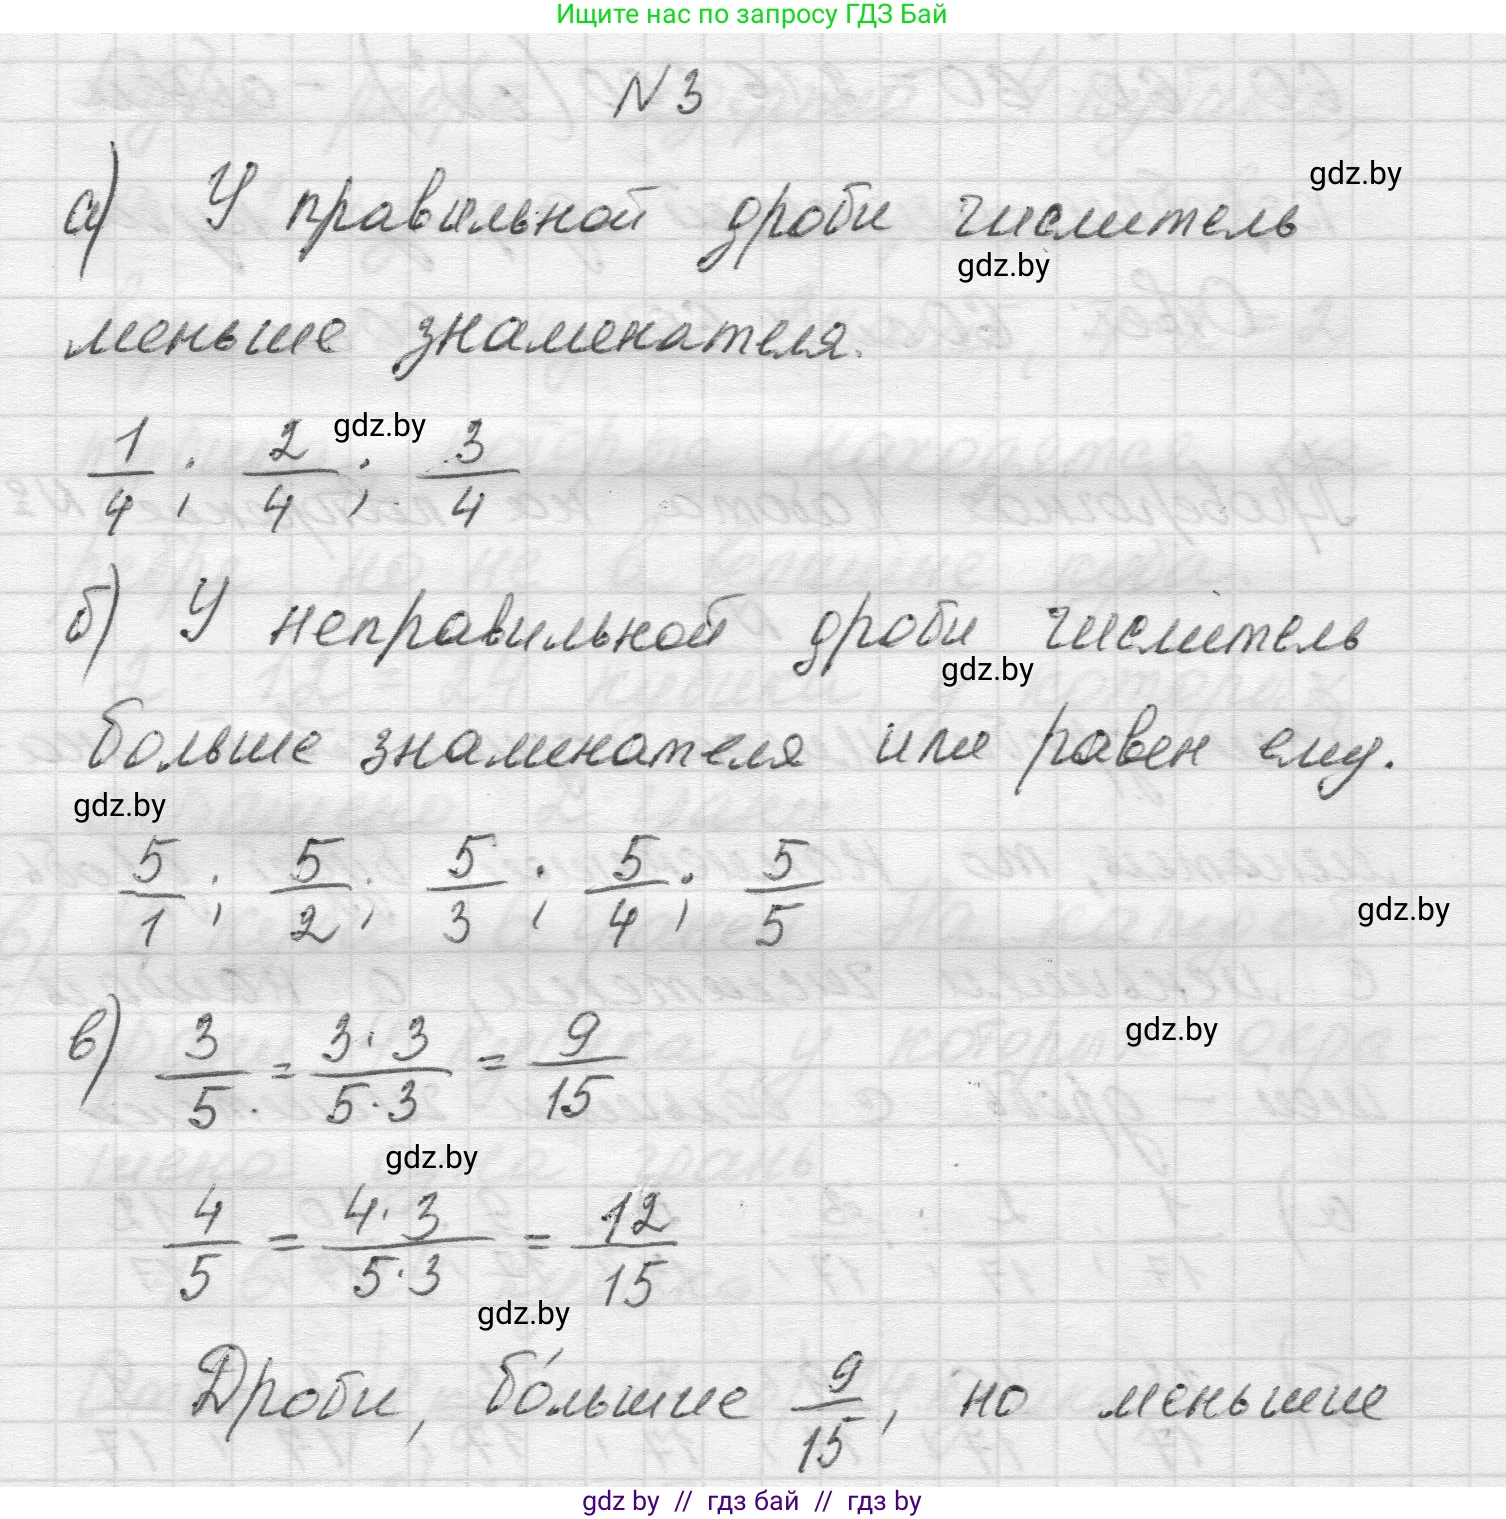 Ищите нас по запросу ГДЗ Бай
N 3
gdz.by
а) У правильной дроби числитель
gdz.by
меньше знаменателя.
gdz.by
1/4 ; 2/4 ; 3/4
б) У неправильной дроби числитель
gdz.by
больше знаменателя или равен ему.
gdz.by
5/1 ; 5/2 ; 5/3 ; 5/4 ; 5/5
gdz.by
gdz.by
в) 3/5 = 3·3/5·3 = 9/15
gdz.by
4/5 = 4·3/5·3 = 12/15
gdz.by
Дроби, бо́льшие 9/15, но меньшие
gdz by // гдз бай // гдз by